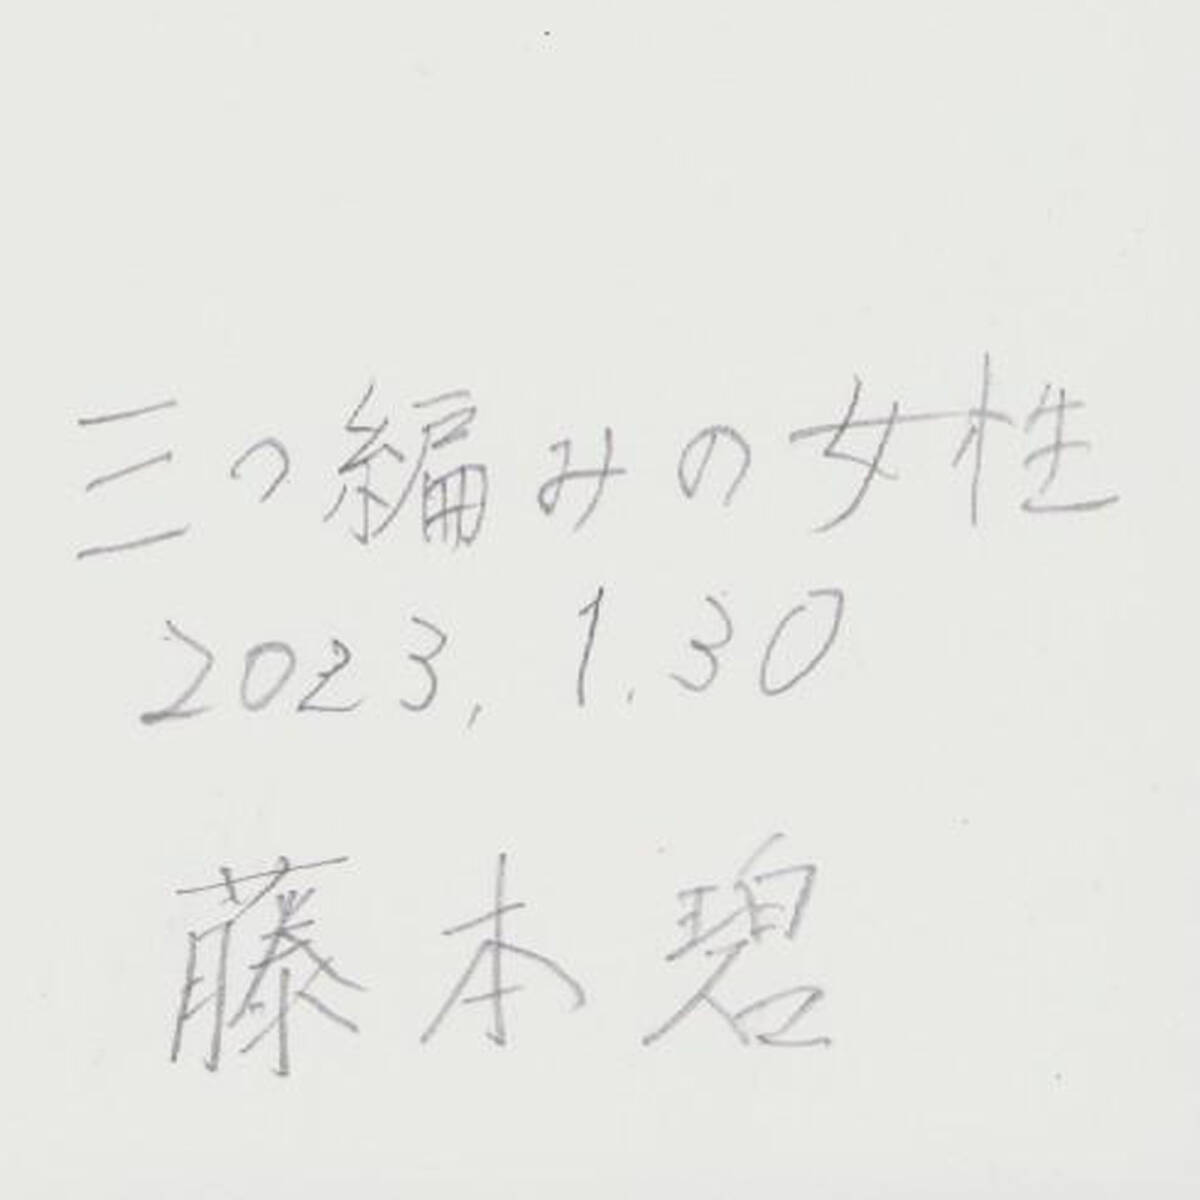 三つ編みの女性
2023. 1. 30
藤本碧